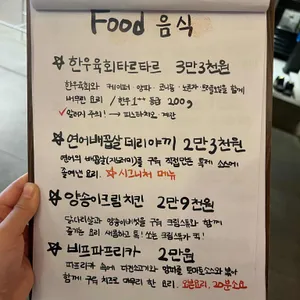 Food 음식
☆ 한우육회타르타르 3만3천원
한우육회와 케이퍼 양파 코니숑 노른자 트러플오일을 함께
내무린 요리 / 한우 1++ 등급 200g
✓ 알러지 주의! → 피스타치오, 계란
☆ 연어배꼽살데리야끼 2만3천원
연어의 배꼽살(뱃살)을 구워 직접만든 특제 소스에
졸여낸 요리. ☆ 시그니처 메뉴
☆ 양송이크림치킨 2만9천원
닭다리살과 양송이버섯을 구워 크림소스와 함께
즐기는 요리 새콤하고 톡! 쏘는 크림소스가 킥!
☆ 비프파프리카 2만원
파프리카 속에 다진소고기와 양파를 토마토소스와 볶아
함께 구워 치즈로 마무리 한 요리. 오븐요리, 20분소요